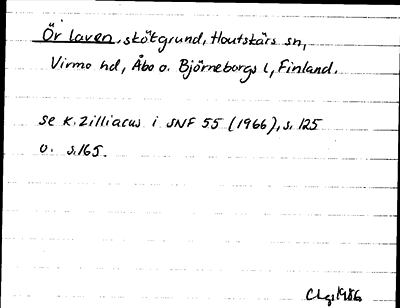 Örlaven, skötgrund, Houtskärs sn,
Virmo hd, Åbo o. Björneborgs l, Finland.
se K. Zilliacus i SNF 55 (1966), s. 125
o. s. 165.
1986